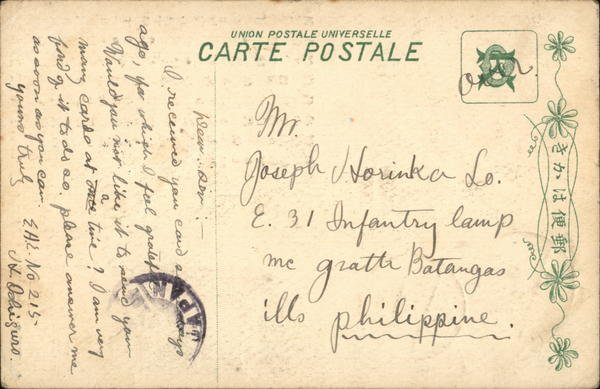 UNION POSTALE UNIVERSELLE
CARTE POSTALE
きかは便郵
Mr.
Joseph Horinka Co.
E. 31 Infantry Camp
mc gratti Batangas
ills philippine.
Dear Sir:-
I received you card days
ago, for which I feel grateful
Would you not like it to send you
many cards at a time? I am very
fond it to do so, please answer me
as soon as you can.
yours truly
No 215-
JAPAN